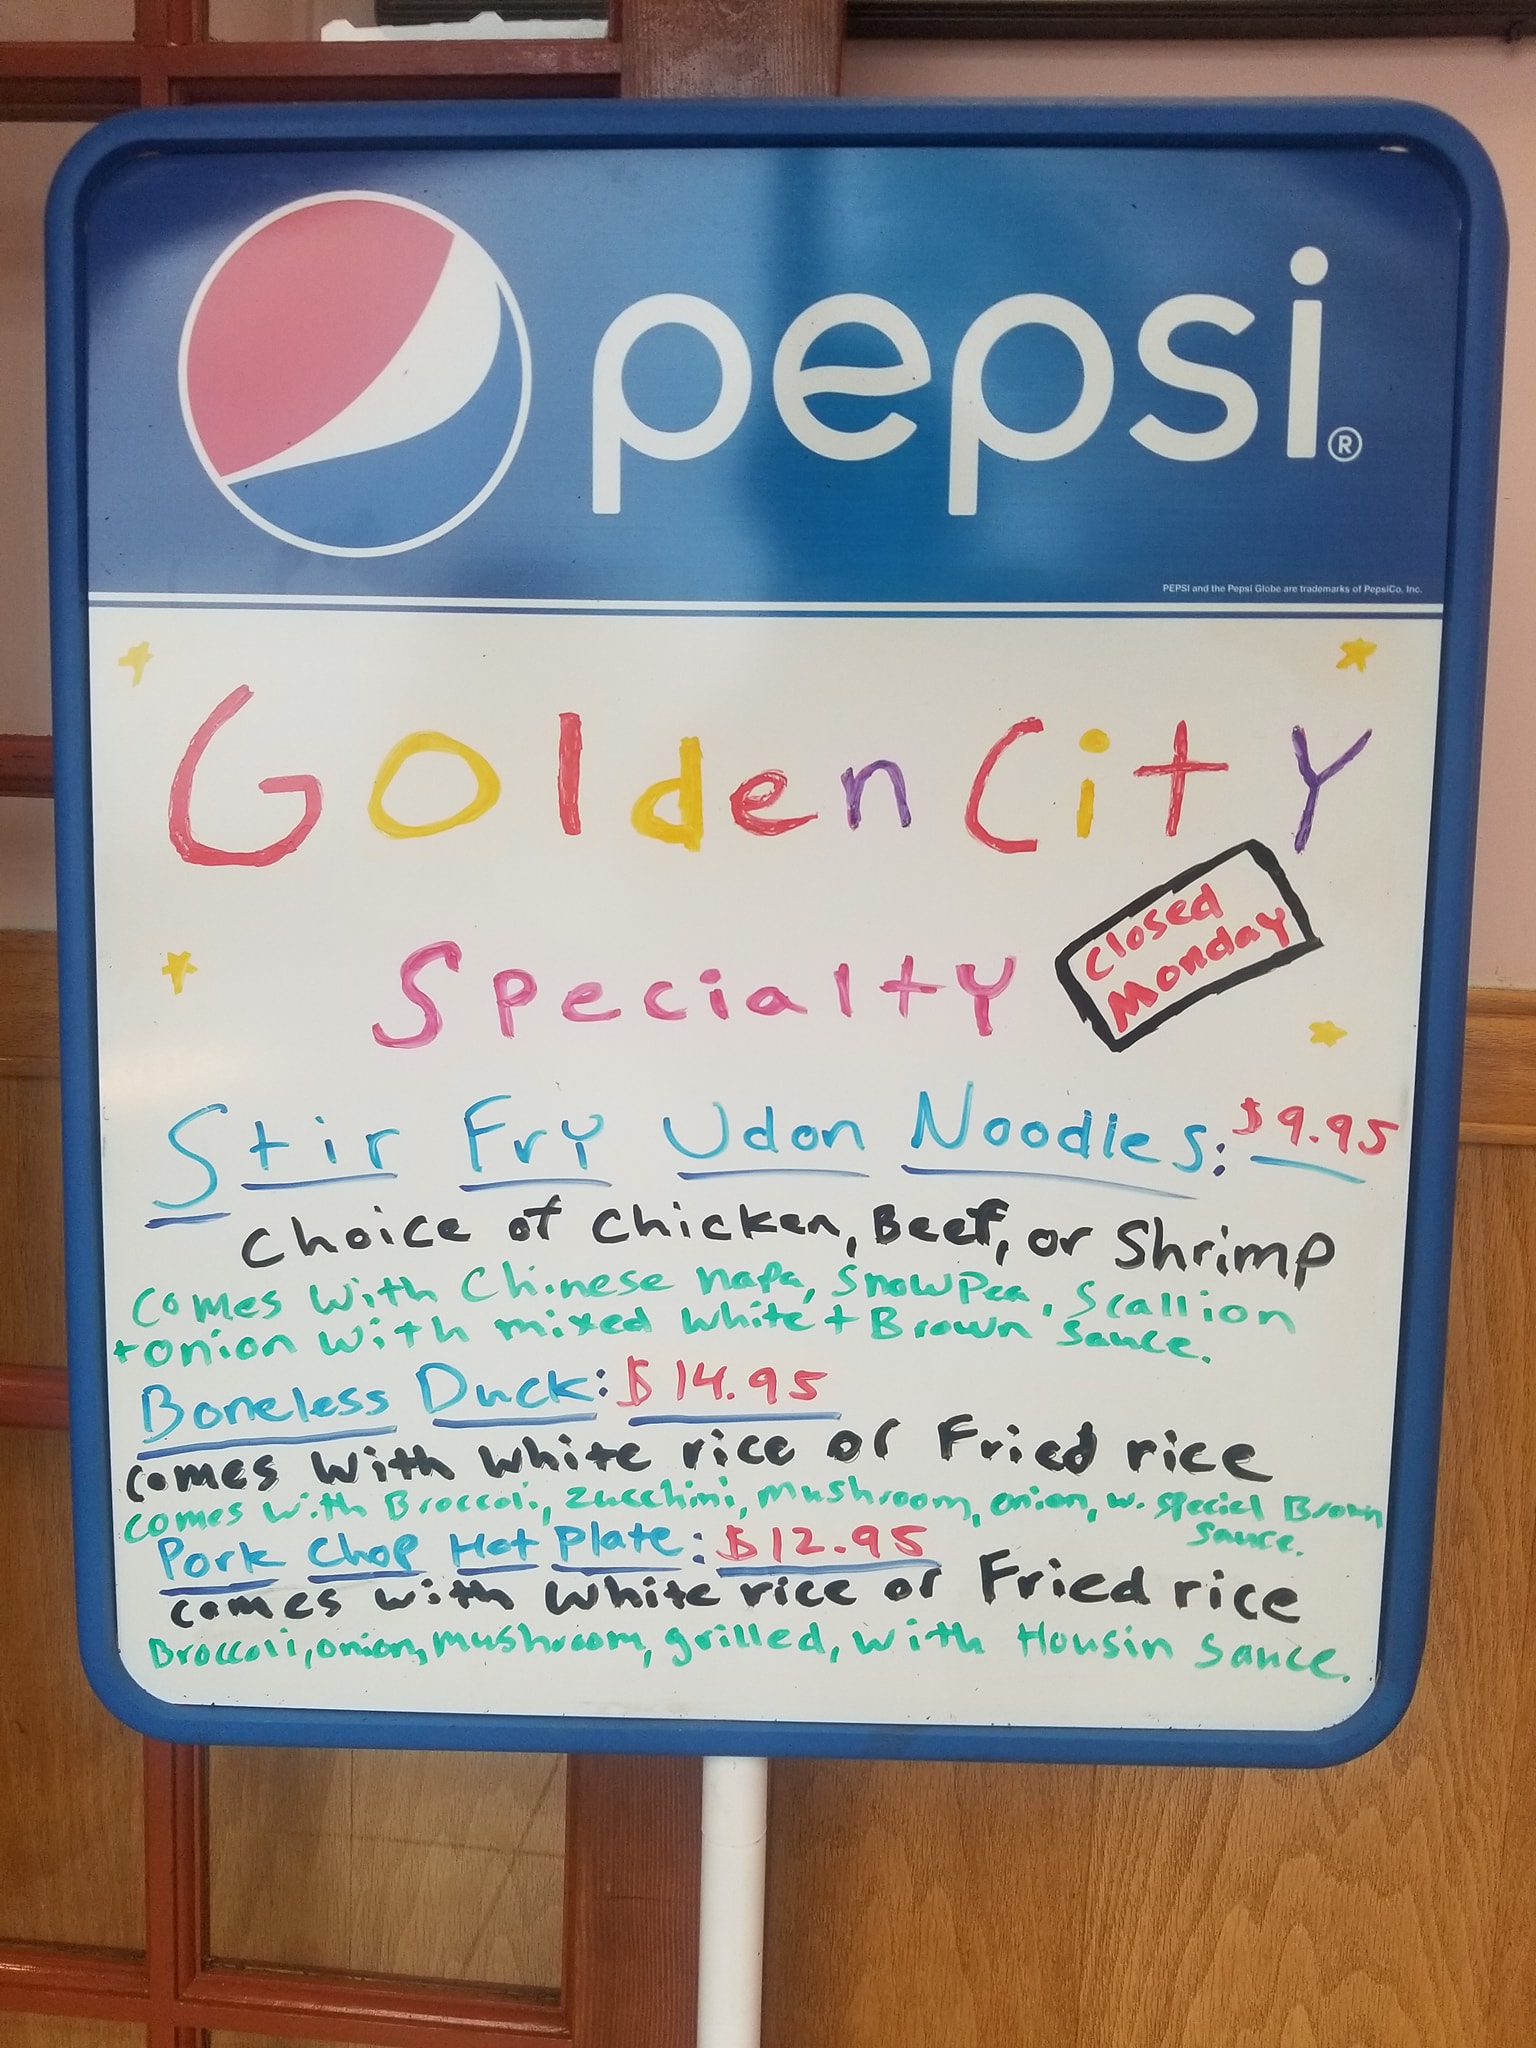 pepsi®
PEPSI and the Pepsi Globe are trademarks of PepsiCo, Inc.
Golden City
Specialty
Closed
Monday
Stir Fry Udon Noodles: $9.95
Choice of Chicken, Beef, or Shrimp
Comes With Chinese napa, Snowpea, Scallion
+ onion with mixed White + Brown Sauce.
Boneless Duck: $14.95
comes with white rice or Fried rice
comes with Broccoli, zucchini, mushroom, onion, w. special Brown
Sauce.
Pork Chop Hot Plate: $12.95
comes with white rice or Fried rice
Broccoli, onion, mushroom, grilled, with Housin Sauce.